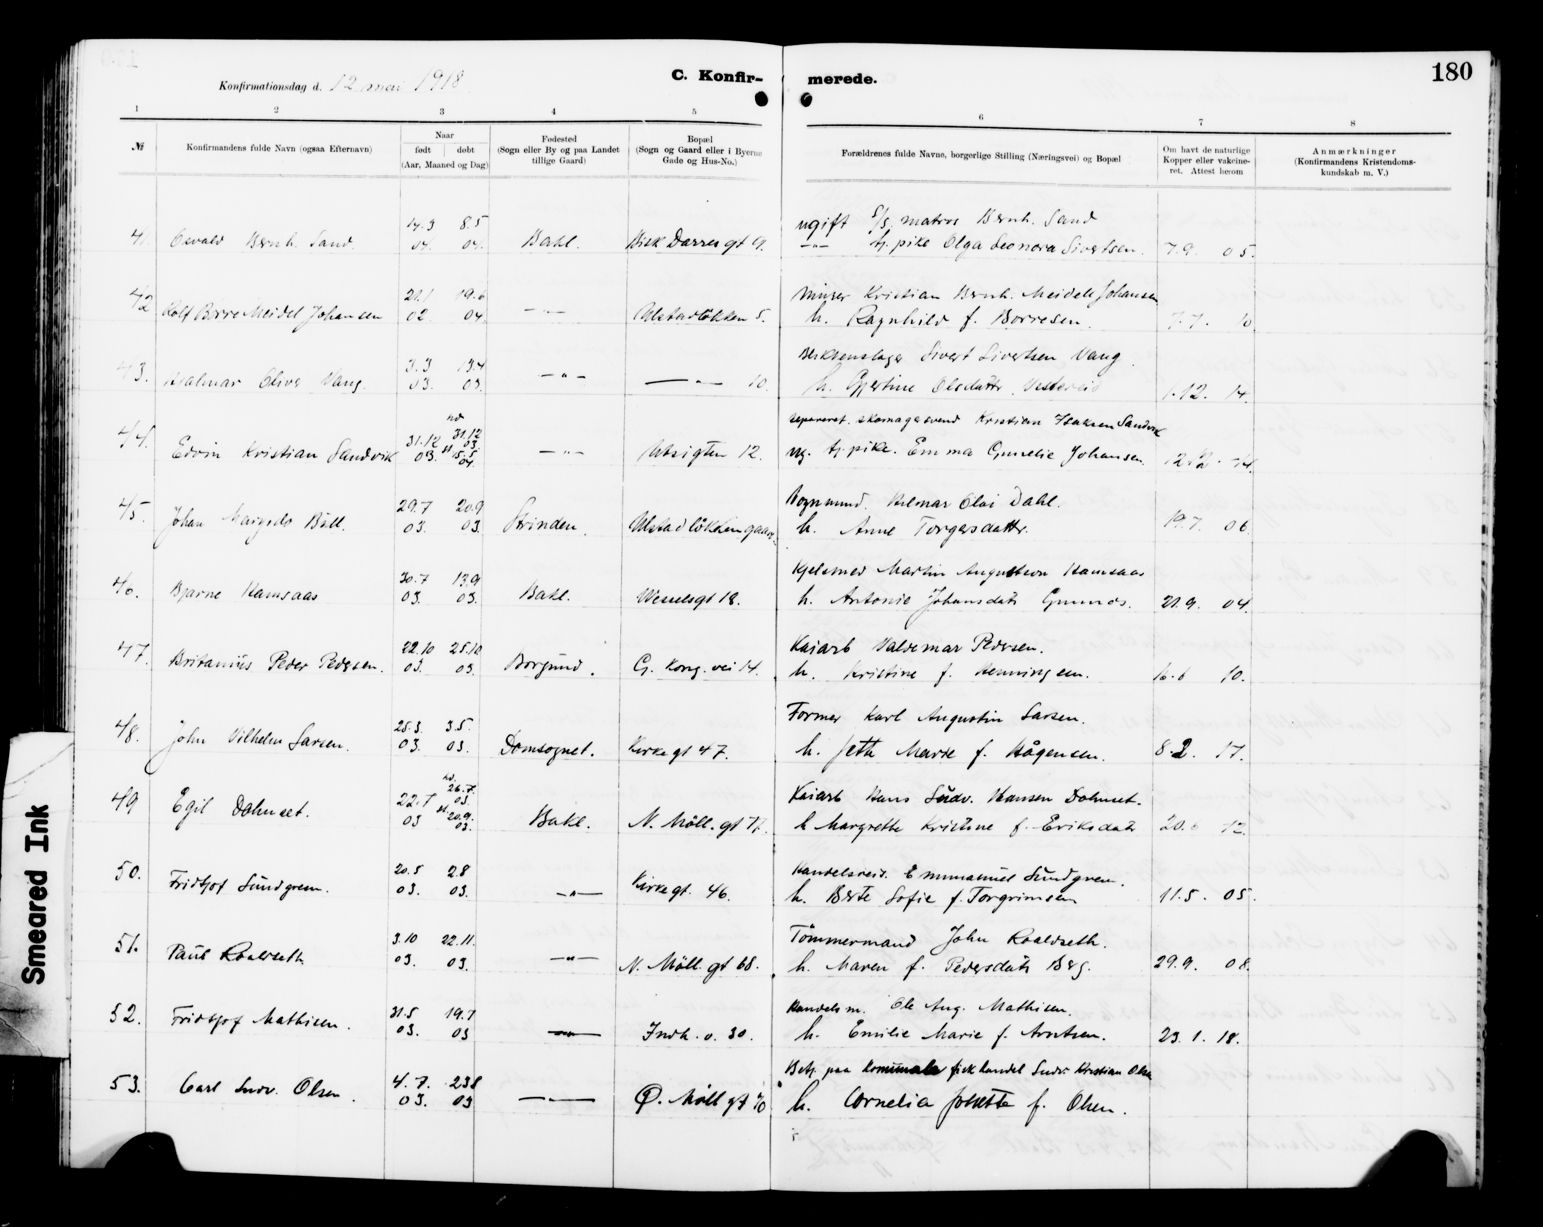 180
C. Konfir-
merede.
Konfirmationsdag d. 12 mai 1918
1 2 3 4 5 6 7 8
№
Konfirmandens fulde Navn (ogsaa Efternavn)
Naar
født døbt
(Aar, Maaned og Dag)
Fødested
(Sogn eller By og paa Landet
tillige Gaard)
Bopæl
(Sogn og Gaard eller i Byerne
Gade og Hus-No.)
Forældrenes fulde Navne, borgerlige Stilling (Næringsvei) og Bopæl
Om havt de naturlige
Kopper eller vakcine-
ret. Attest herom
Anmærkninger
(Konfirmandens Kristendoms-
kundskab m. V.)
14.3 8.5 ugift matros Bernh. Sand
41. Osvald Bernh. Sand. 04. 04. Bakl. Bisk Darres gt 9. —"— tj. pike Olga Leonora Sivertsen. 7.9. 05.
21.1 19.6 Kristian Bernh. Meidell Johansen
42 Rolf Børre Meidel Johansen 02 04. —"— Ulstadløkken 5. h. Ragnhild f. Børresen. 7.7. 10
3.3 13.4 Sivert Sivertsen Vang
43. Hjalmar Oliver Vang. 03. 03. —"— —"— 10. h. Gjertine Olsdatter 1.12. 14.
nd 31.12 separeret. skomagersvend Kristian Isaksen Sandvik
44. Edvin Kristian Sandvik 31.12 03. 03. st 15.5 04. —"— Utsigten 12. ug. tj. pike. Emma Gunelie Johansen. 12.12. 14.
29.7 20.9 Vognmand. Hilmar Olai Dahl.
45. Johan 03. 03. Strinden. Ulstadløkken gaard. h. Anne Torgersdatter. 19.7. 06.
30.7 13.9 Kjelsmed Martin Hamsaas
46. Bjarne Hamsaas 03. 03. Bakl. Wesselsgt 18. h. Antonie Johansdatr 21.9. 04.
22.10 25.10 Kaiarb Valdemar Pedersen.
47. Peder Pedersen. 03. 03. Borgund. G. Kong. vei 14. h. Kristine f. Henningsen. 16.6 10.
25.3. 3.5. Former Karl Augustin Larsen.
48. John Vilhelm Larsen. 03. 03. Domsognet. Kirkegt 47. h. Marie f. Hågensen. 8.2. 17.
nd. 26.7. Kaiarb Hans Ludv. Hansen Dahuset.
49 Egil Dahuset. 22.7 03 03. st. 20.9. 03. Bakl. N. Møll. gt 77. h Margrethe Kristine f. Eriksdatr 20.6 12
20.5 2.8 Handelsreis. Emmanuel Sundgren.
50. Fridtjof Sundgren. 03. 03. —"— Kirkegt. 46. h. Berte Sofie f. Torgrimsen 11.5. 05.
3.10 22.11. Tømmermand John Roaldseth.
51. Paul Roaldseth 03. 03. —"— N. Møll. gt 68. h. Maren f. Pedersdatr Berg. 29.9. 08.
31.5 19.7 Handelsm. Ole Aug. Mathisen.
52. Fridtjof Mathisen. 03. 03 —"— Indh. v. 30. h. Emilie Marie f. Arntsen. 23. 1. 18.
4.7. 23.8 Betj. paa kommunale fisk handel Ludv. Kristian Olsen
53. Carl Ludv. Olsen. 03. 03 —"— Ø. Møll gt 70 h. Cornelia f. Olsen.
Smeared Ink